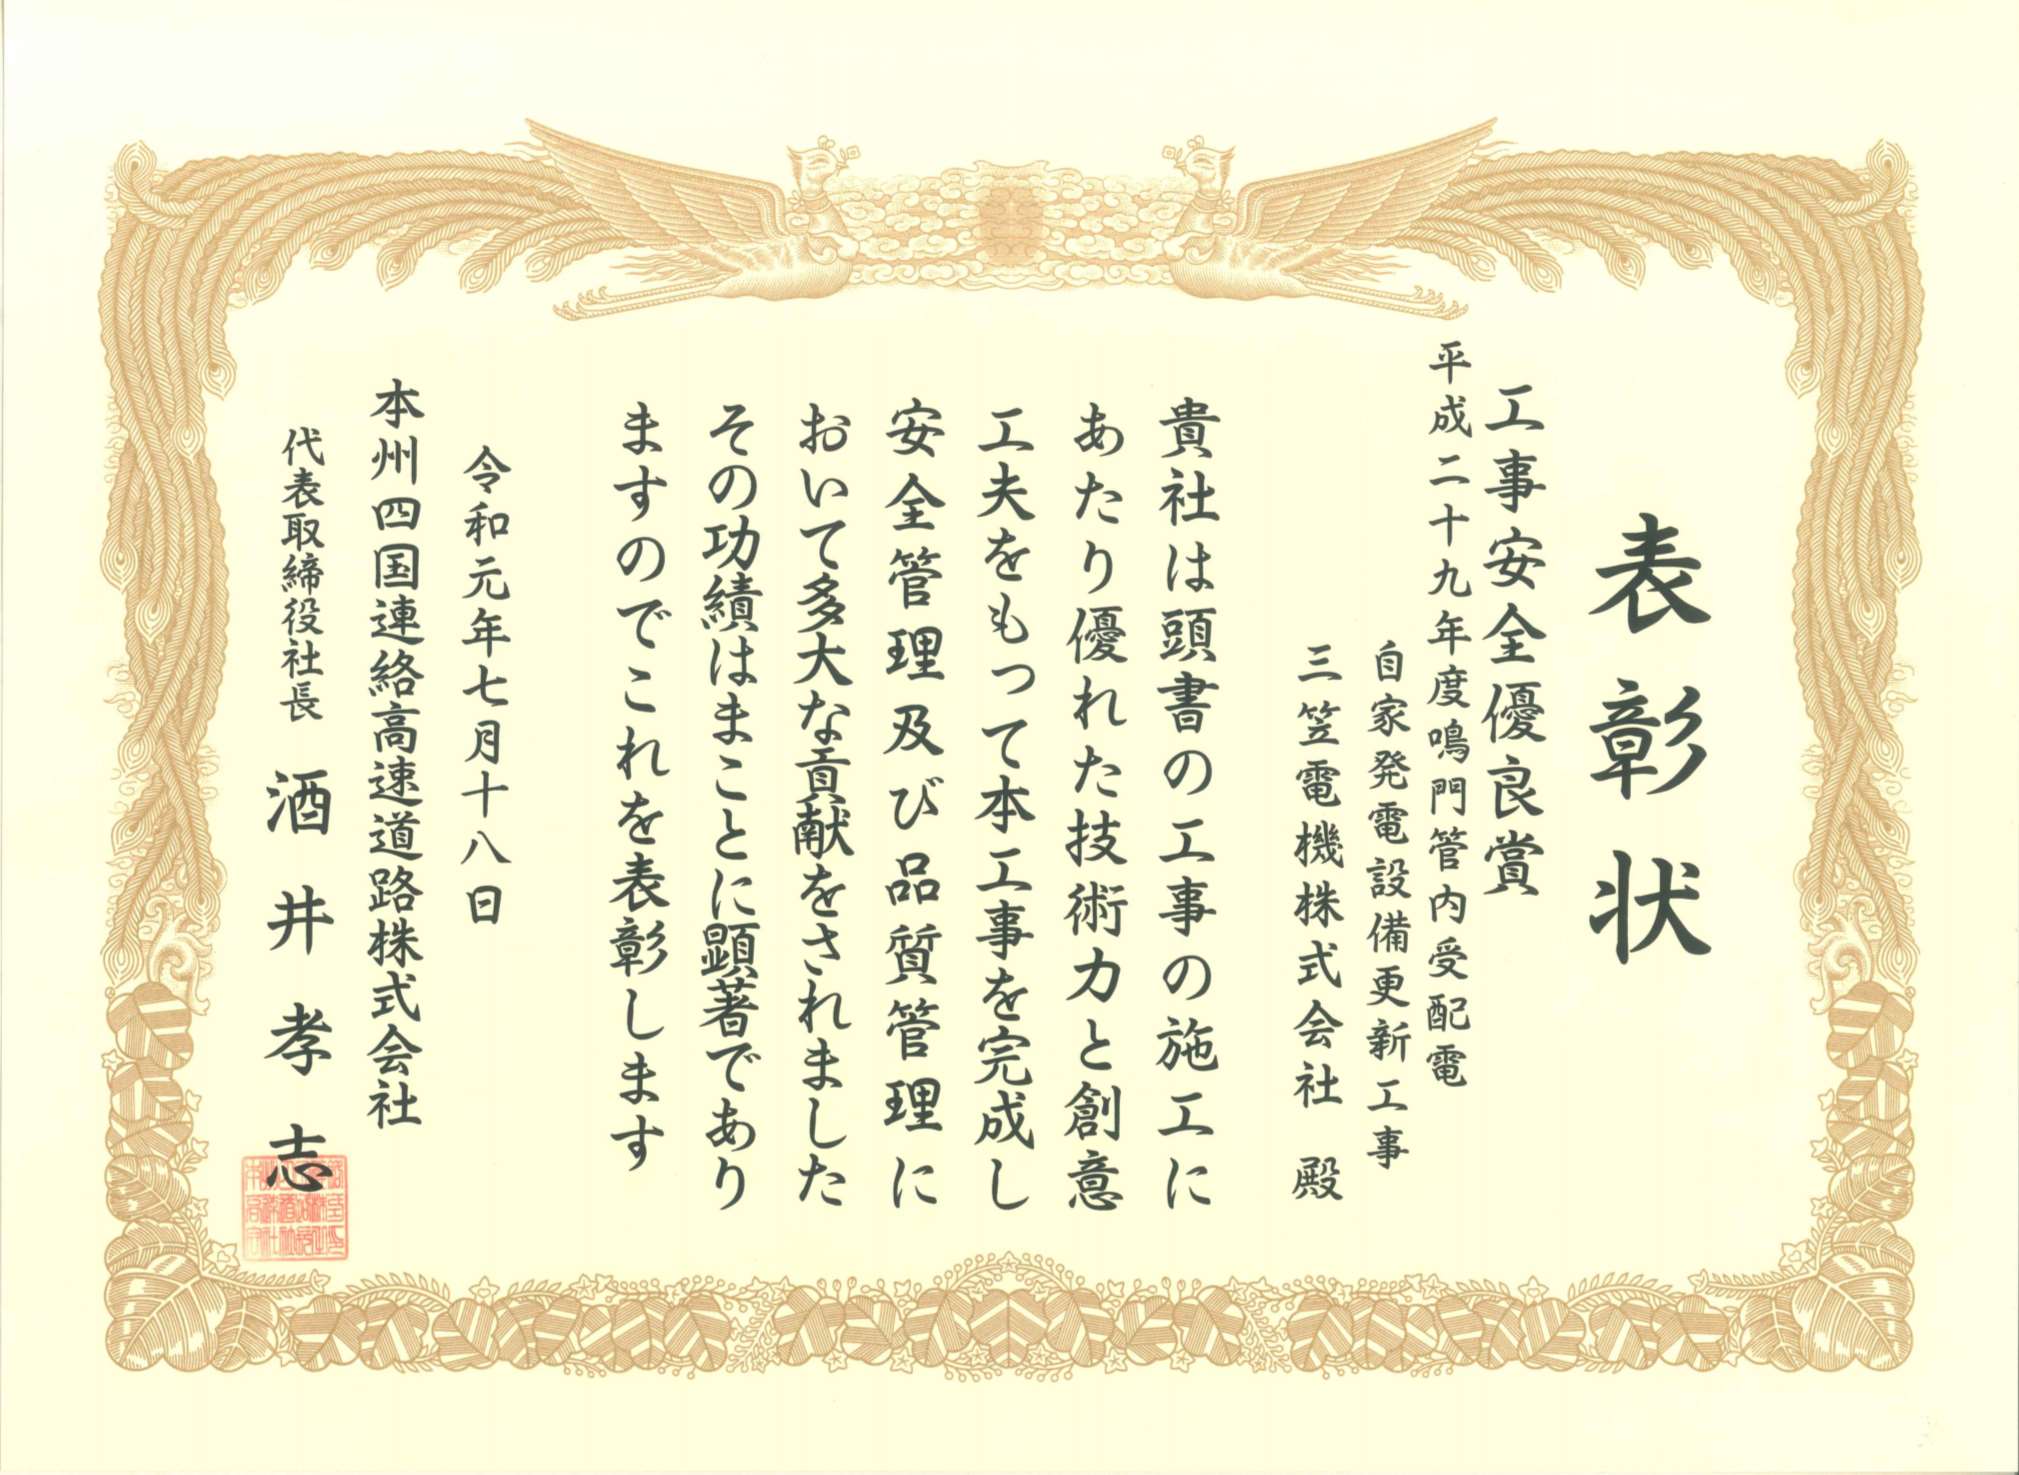 表彰状
工事安全優良賞
平成二十九年度鳴門管内受配電
自家発電設備更新工事
三笠電機株式会社 殿
貴社は頭書の工事の施工に
あたり優れた技術力と創意
工夫をもって本工事を完成し
安全管理及び品質管理に
おいて多大な貢献をされました
その功績はまことに顕著であり
ますのでこれを表彰します
令和元年七月十八日
本州四国連絡高速道路株式会社
代表取締役社長 酒井孝志